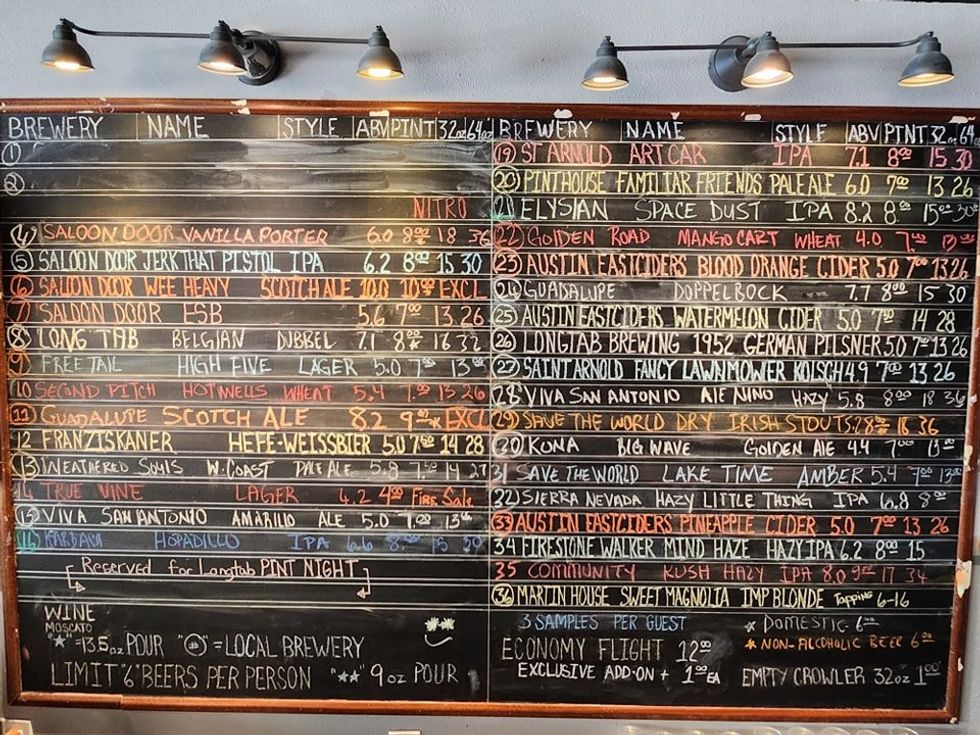 BREWERY NAME STYLE ABV PINT 32oz 64oz
1
2
NITRO
4 SALOON DOOR VANILLA PORTER 6.0 8⁰⁰ 18 36
5 SALOON DOOR JERK THAT PISTOL IPA 6.2 8⁰⁰ 15 30
6 SALOON DOOR WEE HEAVY SCOTCH ALE 10.0 10⁰⁰* EXCL
7 SALOON DOOR ESB 5.6 7⁰⁰ 13 26
8 LONG TAB BELGIAN DUBBEL 7.1 8 16 32
9 FREETAIL HIGH FIVE LAGER 5.0 7 13
10 SECOND PITCH HOTWELLS WHEAT 5.4 7.⁰⁰ 13 26
11 GUADALUPE SCOTCH ALE 8.2 9 EXCL
12 FRANZISKANER HEFE-WEISSBIER 5.0 7⁵⁰ 14 28
13 WEATHERED SOULS W. COAST PALE ALE 5.8 7.⁵⁰ 14 27
14 TRUE VINE LAGER 4.2 4⁰⁰ Fire Sale
15 VIVA SAN ANTONIO AMARILLO ALE 5.0 7.⁰⁰ 13
16 KARBACH HOPADILLO IPA 6.6 8 15 30
Reserved for Longtab PINT NIGHT
WINE
MOSCATO
"★" = 13.5oz POUR "#" = LOCAL BREWERY
LIMIT "6" BEERS PER PERSON "★★" 9 oz POUR
BREWERY NAME STYLE ABV PINT 32oz 64
19 ST ARNOLD ART CAR IPA 7.1 8⁰⁰ 15 30
20 PINTHOUSE FAMILIAR FRIENDS PALE ALE 6.0 7⁰⁰ 13 26
21 ELYSIAN SPACE DUST IPA 8.2 8.⁰⁰ 15⁰⁰ 30
22 GOLDEN ROAD MANGO CART WHEAT 4.0 7 13
23 AUSTIN EASTCIDERS BLOOD ORANGE CIDER 5.0 7⁰⁰ 13 26
24 GUADALUPE DOPPELBOCK 7.7 8⁰⁰ 15 30
25 AUSTIN EASTCIDERS WATERMELON CIDER 5.0 7⁵⁰ 14 28
26 LONGTAB BREWING 1952 GERMAN PILSNER 5.0 7⁰⁰ 13 26
27 SAINT ARNOLD FANCY LAWNMOWER KOLSCH 4.9 7⁰⁰ 13 26
28 VIVA SAN ANTONIO ALE NINO HAZY 5.8 8⁰⁰ 18 36
29 SAVE THE WORLD DRY IRISH STOUT 5.7 8 18 36
30 KONA BIG WAVE GOLDEN ALE 4.4 7 13
31 SAVE THE WORLD LAKE TIME AMBER 5.4 7⁰⁰ 13
32 SIERRA NEVADA HAZY LITTLE THING IPA 6.8 8⁰⁰
33 AUSTIN EASTCIDERS PINEAPPLE CIDER 5.0 7⁰⁰ 13 26
34 FIRESTONE WALKER MIND HAZE HAZY IPA 6.2 8⁰⁰ 15
35 COMMUNITY KUSH HAZY IPA 8.0 9⁰⁰ 17 34
36 MARTIN HOUSE SWEET MAGNOLIA IMP BLONDE Tapping 6-16
3 SAMPLES PER GUEST
ECONOMY FLIGHT 12¹⁸
EXCLUSIVE ADD-ON + 1⁰⁰ EA
★ DOMESTIC 6⁰⁰
★ NON-ALCOHOLIC BEER 6⁰⁰
EMPTY CROWLER 32oz 1.⁰⁰